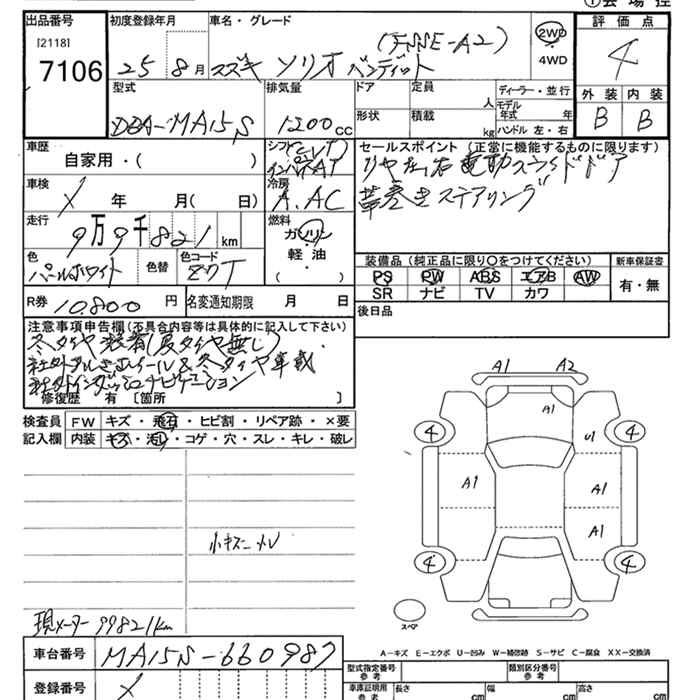 ①会場控
出品番号
[2118]
7106
初度登録年月
25 8月
車名・グレード
(FNSE-A2)
スズキ ソリオ バンディット
2WD
・
4WD
評価点
4
外装 内装
B B
型式
DBA-MA15S
排気量
1200cc
ドア
形状
定員
人
積載
kg
ディーラー・並行
モデル年式 年
ハンドル 左・右
車歴
自家用・( )
シフト
CVT
インパネAT
セールスポイント (正常に機能するものに限ります)
リヤ左右電動スライドドア
革巻きステアリング
車検
X 年 月( 日)
冷房
A.AC
走行
9万9千821km
燃料
ガソリン
軽油
( )
色
パールホワイト
色替
色コード
Z7T
装備品 (純正品に限り○をつけてください)
PS PW ABS エアB AW
SR ナビ TV カワ
新車保証書
有・無
R券 10.800円
名変通知期限 月 日
後日品
注意事項申告欄(不具合内容等は具体的に記入して下さい)
冬タイヤ装着(夏タイヤ無し)
社外アルミホイール&冬タイヤ車載
社外インダッシュナビゲーション
修復歴 有 〔箇所 〕
検査員記入欄
FW キズ・飛石・ヒビ割・リペア跡・×要
内装 キズ・汚レ・コゲ・穴・スレ・キレ・破レ
小キズニメU
A1 A2
A1
4 U1 4
A1 A1
A1
4 4
スペア
現メーター 99821km
A-キズ E-エクボ U-凹み W-補修跡 S-サビ C-腐食 XX-交換済
車台番号 MA15S-660987
登録番号 X
型式指定番号
参考
類別区分番号
参考
車庫証明用
参考
長さ cm
幅 cm
高さ cm